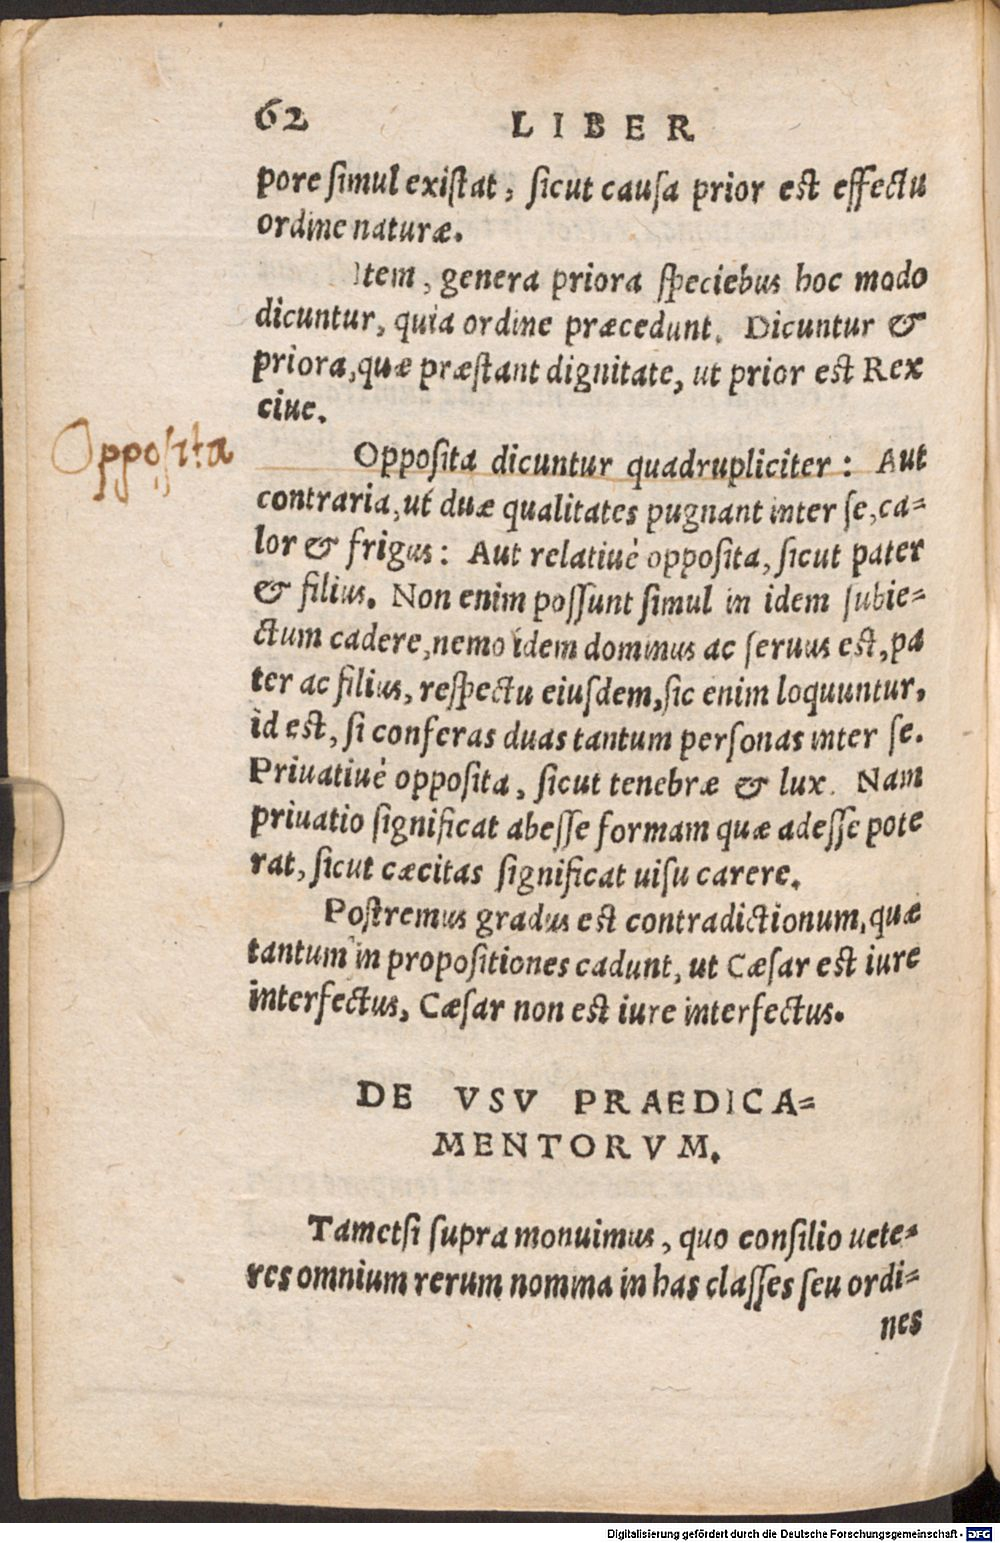 62 LIBER
pore ſimul exiſtat, ſicut cauſa prior est effectu
ordine naturæ.
Item, genera priora ſpeciebus hoc modo
dicuntur, quia ordine præcedunt. Dicuntur &
priora, quæ præſtant dignitate, ut prior est Rex
ciue.
Oppoſita
Oppoſita dicuntur quadrupliciter: Aut
contraria, ut duæ qualitates pugnant inter ſe, ca=
lor & frigus: Aut relatiuè oppoſita, ſicut pater
& filius. Non enim poſſunt ſimul in idem ſubie=
ctum cadere, nemo idem dominus ac ſeruus est, pa
ter ac filius, reſpectu eiuſdem, ſic enim loquuntur,
id est, ſi conferas duas tantum perſonas inter ſe.
Priuatiuè oppoſita, ſicut tenebræ & lux. Nam
priuatio ſignificat abeſſe formam quæ adeſſe pote
rat, ſicut cæcitas ſignificat uiſu carere.
Poſtremus gradus est contradictionum, quæ
tantum in propoſitiones cadunt, ut Cæſar est iure
interfectus, Cæſar non est iure interfectus.
DE VSV PRAEDICA=
MENTORVM.
Tametſi ſupra monuimus, quo conſilio uete=
res omnium rerum nomina in has claſſes ſeu ordi=
nes
Digitalisierung gefördert durch die Deutsche Forschungsgemeinschaft - DFG